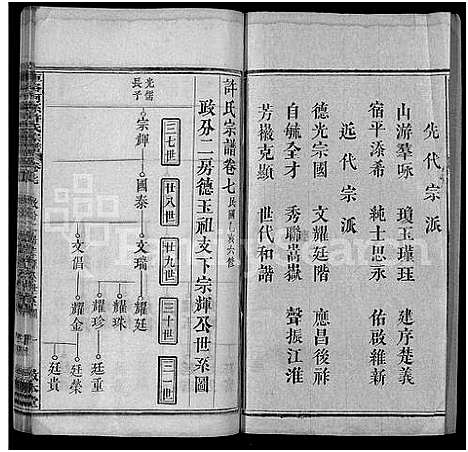 先代宗派
山游羣咏 瓊玉瑾珏 建序楚義
宿平添希 純士思永 佑啟維新
近代宗派
德光宗國 文耀廷階 應昌後祚
自毓全才 秀聯嵩嶽 聲振江淮
芳徽克顯 世代和諧
許氏宗譜卷七
政分二房德玉祖支下宗輝公世系圖
三七世
廿八世
廿九世
三十世
三一世
光儒長子
宗輝
國泰
文瑞
耀廷
耀珠
耀珍
廷重
文倡
耀金
廷榮
廷貴